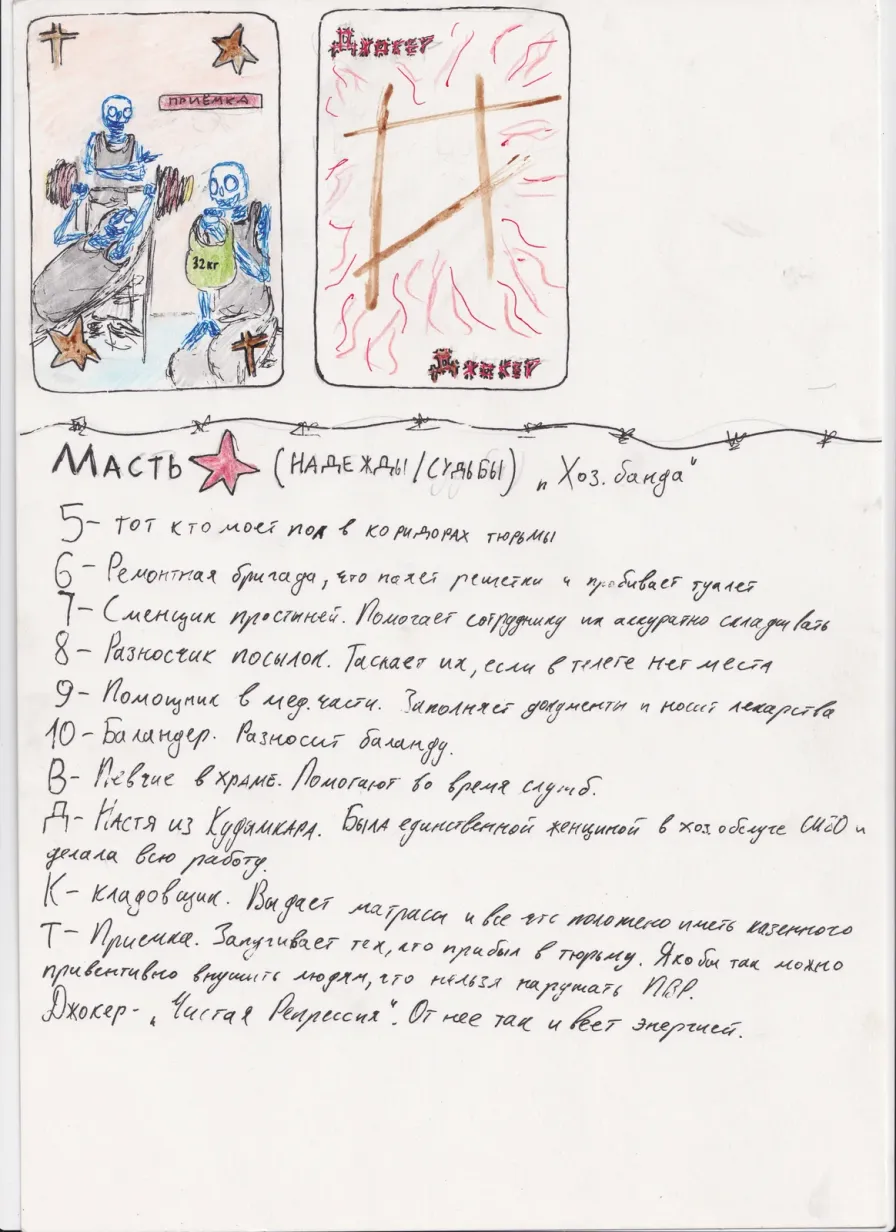 Т
ПРИЁМКА
32кг
Т
Джокер
Джокер
МАСТЬ (НАДЕЖДЫ/СУДЬБЫ) „Хоз. банда"
5 – тот кто моет пол в коридорах тюрьмы
6 – Ремонтная бригада, что паяет решетки и пробивает туалет
7 – Сменщик простыней. Помогает сотруднику их аккуратно складывать
8 – Разносчик посылок. Таскает их, если в телеге нет места
9 – Помощник в мед. части. Заполняет документы и носит лекарства
10 – Баландер. Разносит баланду.
В – Певчие в ХРАМЕ. Помогают во время служб.
Д – Настя из Кудымкара. Была единственной женщиной в хоз. обслуге СИЗО и
делала всю работу.
К – кладовщик. Выдает матрасы и все что положено иметь казенного
Т – Приемка. Запугивает тех, кто прибыл в тюрьму. Якобы так можно
привентивно внушить людям, что нельзя нарушать ПВР.
Джокер – „Чистая Репрессия". От нее так и веет энергией.